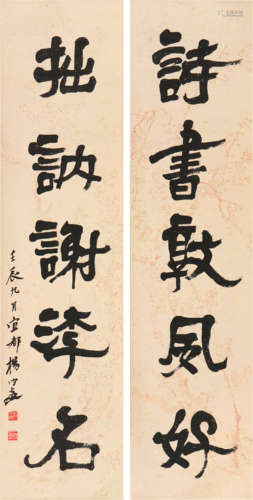 詩書敦夙好
拙訥謝浮名
壬辰九月宜都楊守敬